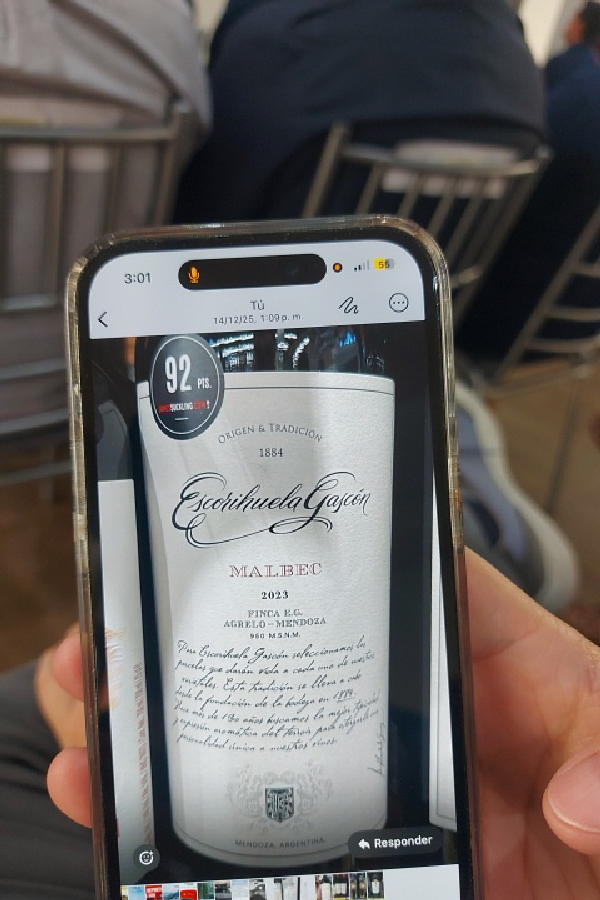 3:01
55
Tú
14/12/25, 1:09 p. m.
92 PTS.
SUCKLING
ORIGEN & TRADICIÓN
1884
Escorihuela Gascón
MALBEC
2023
FINCA E.G.
AGRELO - MENDOZA
980 M.S.N.M.
Para Escorihuela Gascón seleccionamos las
parcelas que darán vida a cada uno de nuestros
varietales. Esta tradición se lleva a cabo
desde la fundación de la bodega en 1884.
Hace más de 130 años buscamos la mejor
expresión aromática del terroir para
personalidad única a nuestros vinos.
MENDOZA, ARGENTINA
Responder